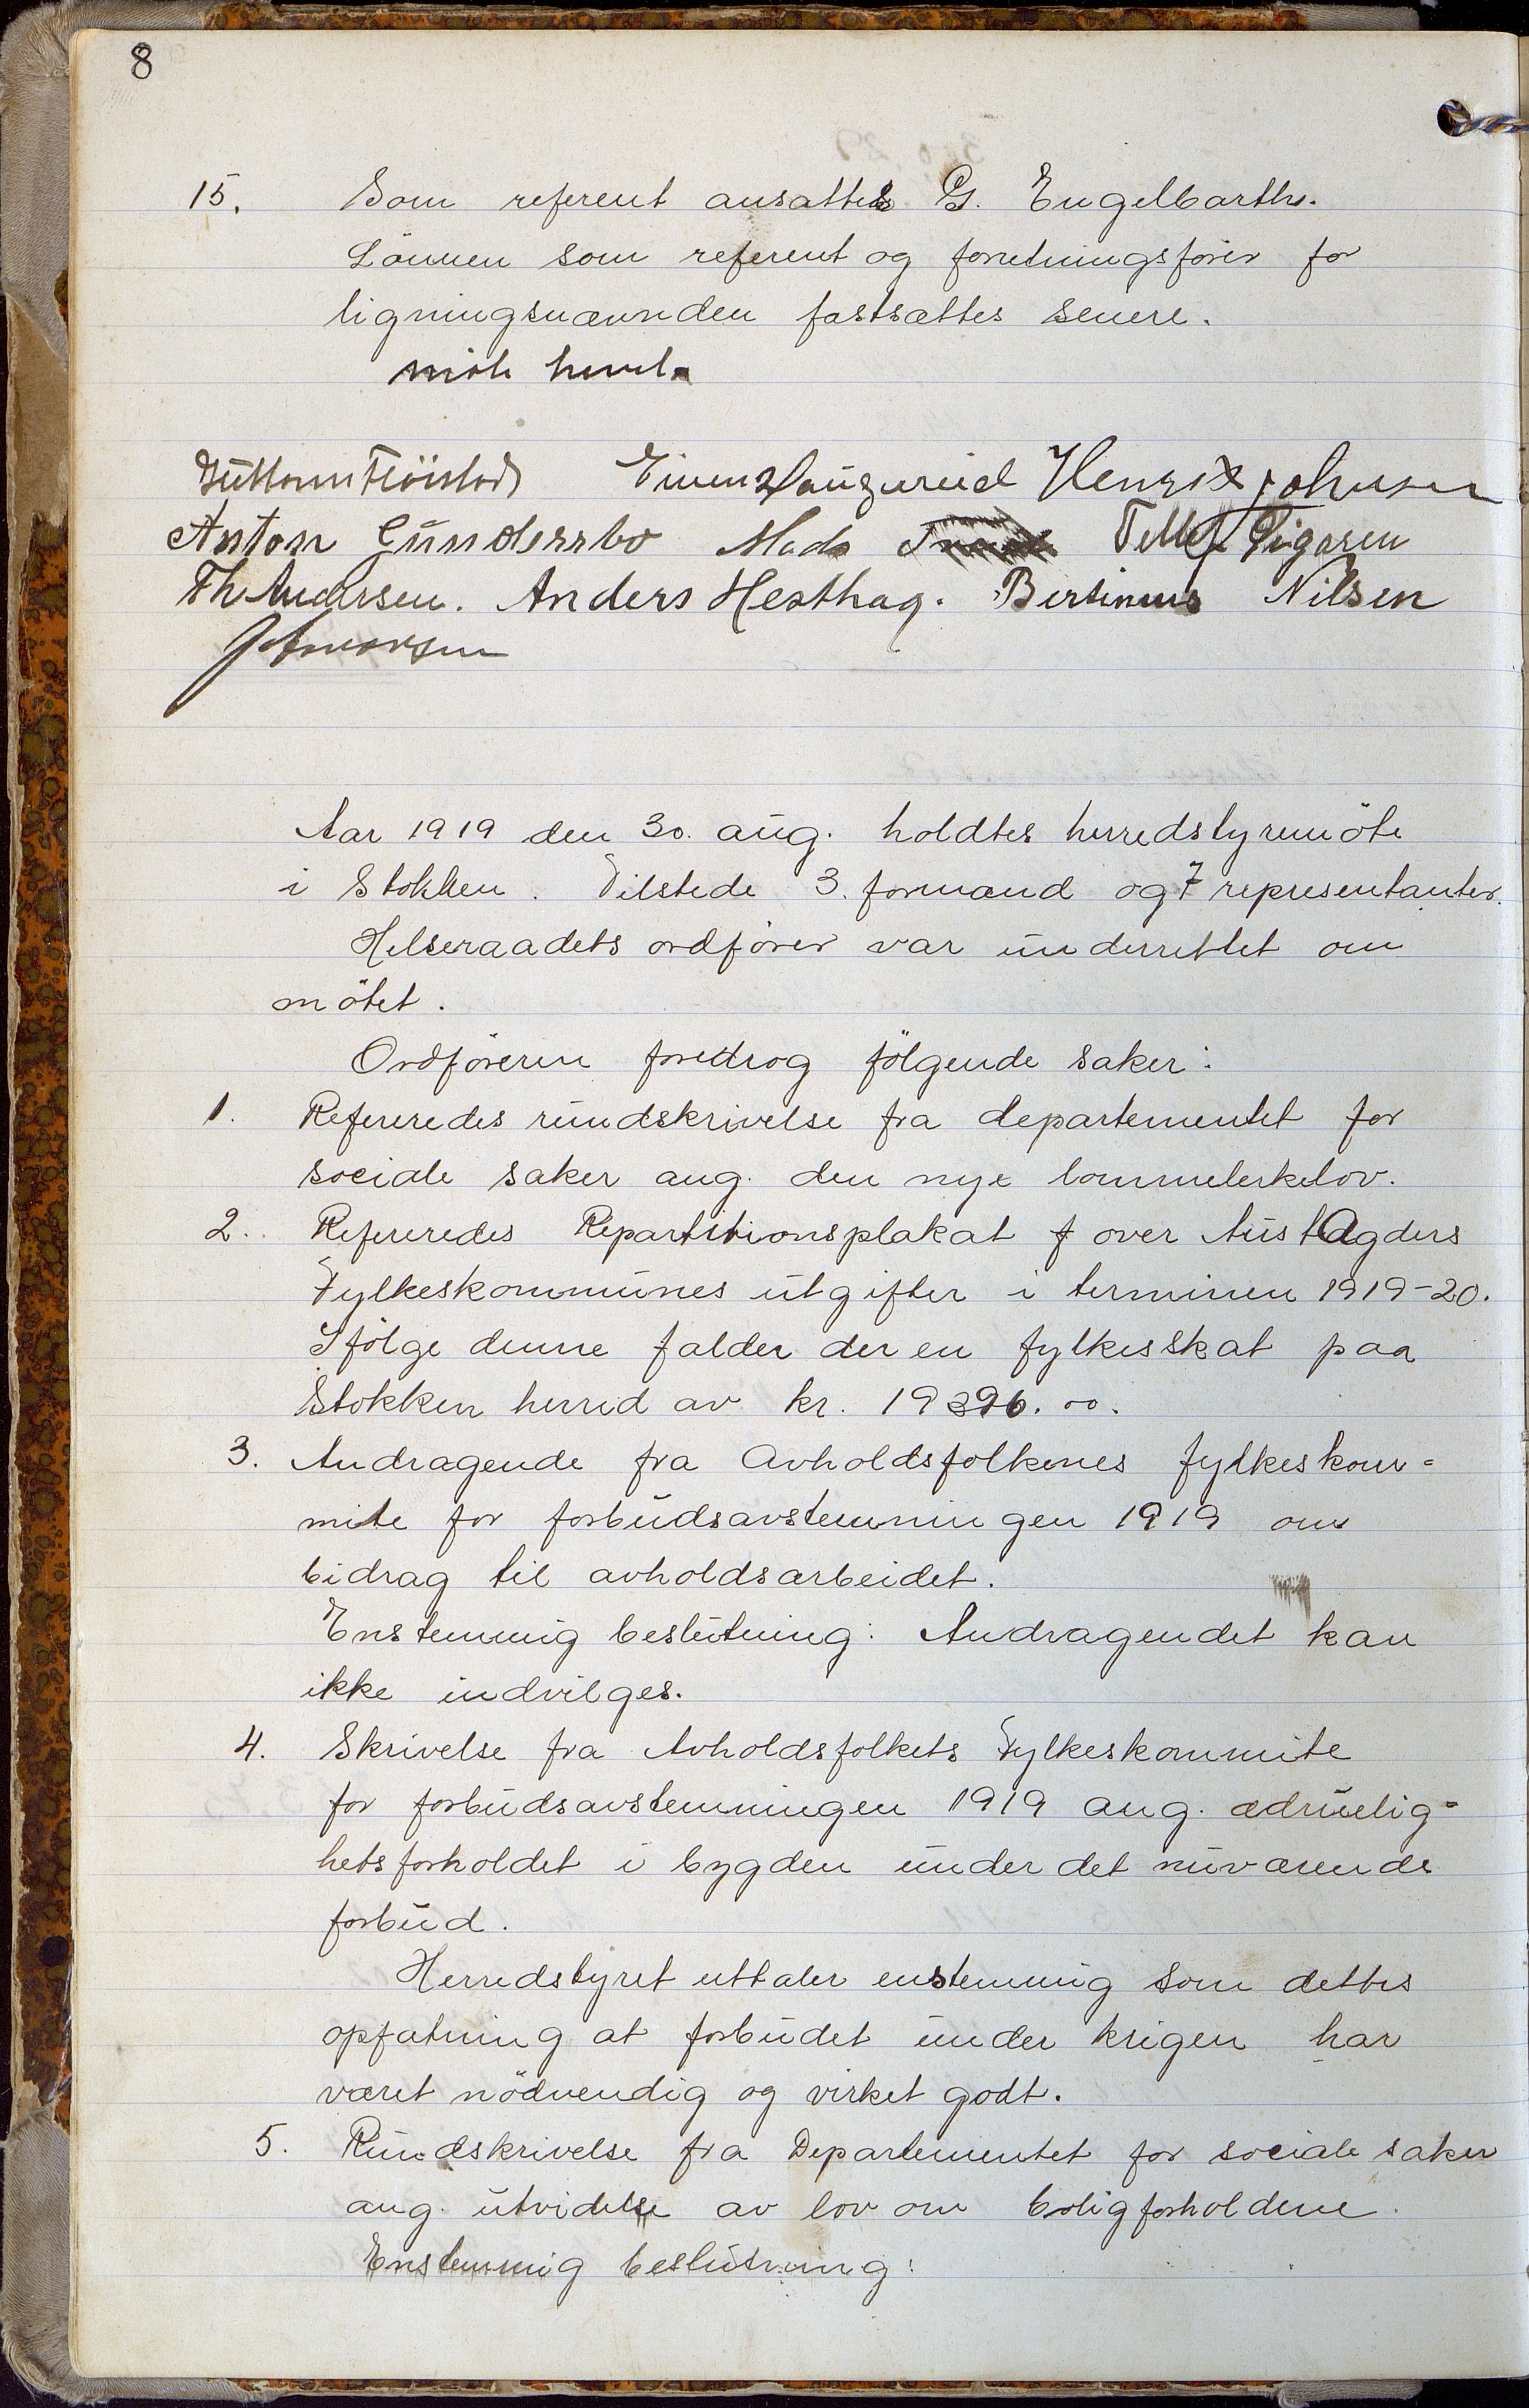 8
15. Som referent ansattes G. Engelbarth.
Lönnen som referent og forretningsförer for
ligningsnævnden fastsættes senere.
möte hevet.
Henrik Johnsen
Anton Gundersbo Mads Tellef Sigarsen
Th Andersen. Anders Hesthag. Bertinius Nilsen
Aar 1919 den 30. aug. holdtes herredstyremöte
i Stokken. Tilstede 3. formænd og 7 representanter.
Helseraadets ordförer var underrettet om
mötet.
Ordföreren foredrog fölgende saker:
1. Refereredes rundskrivelse fra departementet for
sociale saker ang. den nye lommelerkelov.
2. Refereredes Repartitionsplakat over Aust Agders
Fylkeskommunes utgifter i terminen 1919-20.
Ifölge denne falder der en fylkesskat paa
Stokken herred av kr. 19396.00.
3. Andragende fra Avholdsfolkenes fylkeskom-
mite for forbudsavstemningen 1919 om
bidrag til avholdsarbeidet.
Enstemmig beslutning: Andragendet kan
ikke indvilges.
4. Skrivelse fra Avholdsfolkets Fylkeskommite
for forbudsavstemningen 1919 ang. ædruelig-
hetsforholdet i bygden under det nuværende
forbud.
Herredstyret uttaler enstemmig som dettes
opfatning at forbudet under krigen har
været nödvendig og virket godt.
5. Rundskrivelse fra Departementet for sociale saker
ang. utvidelse av lov om boligforholdene.
Enstemmig beslutning: